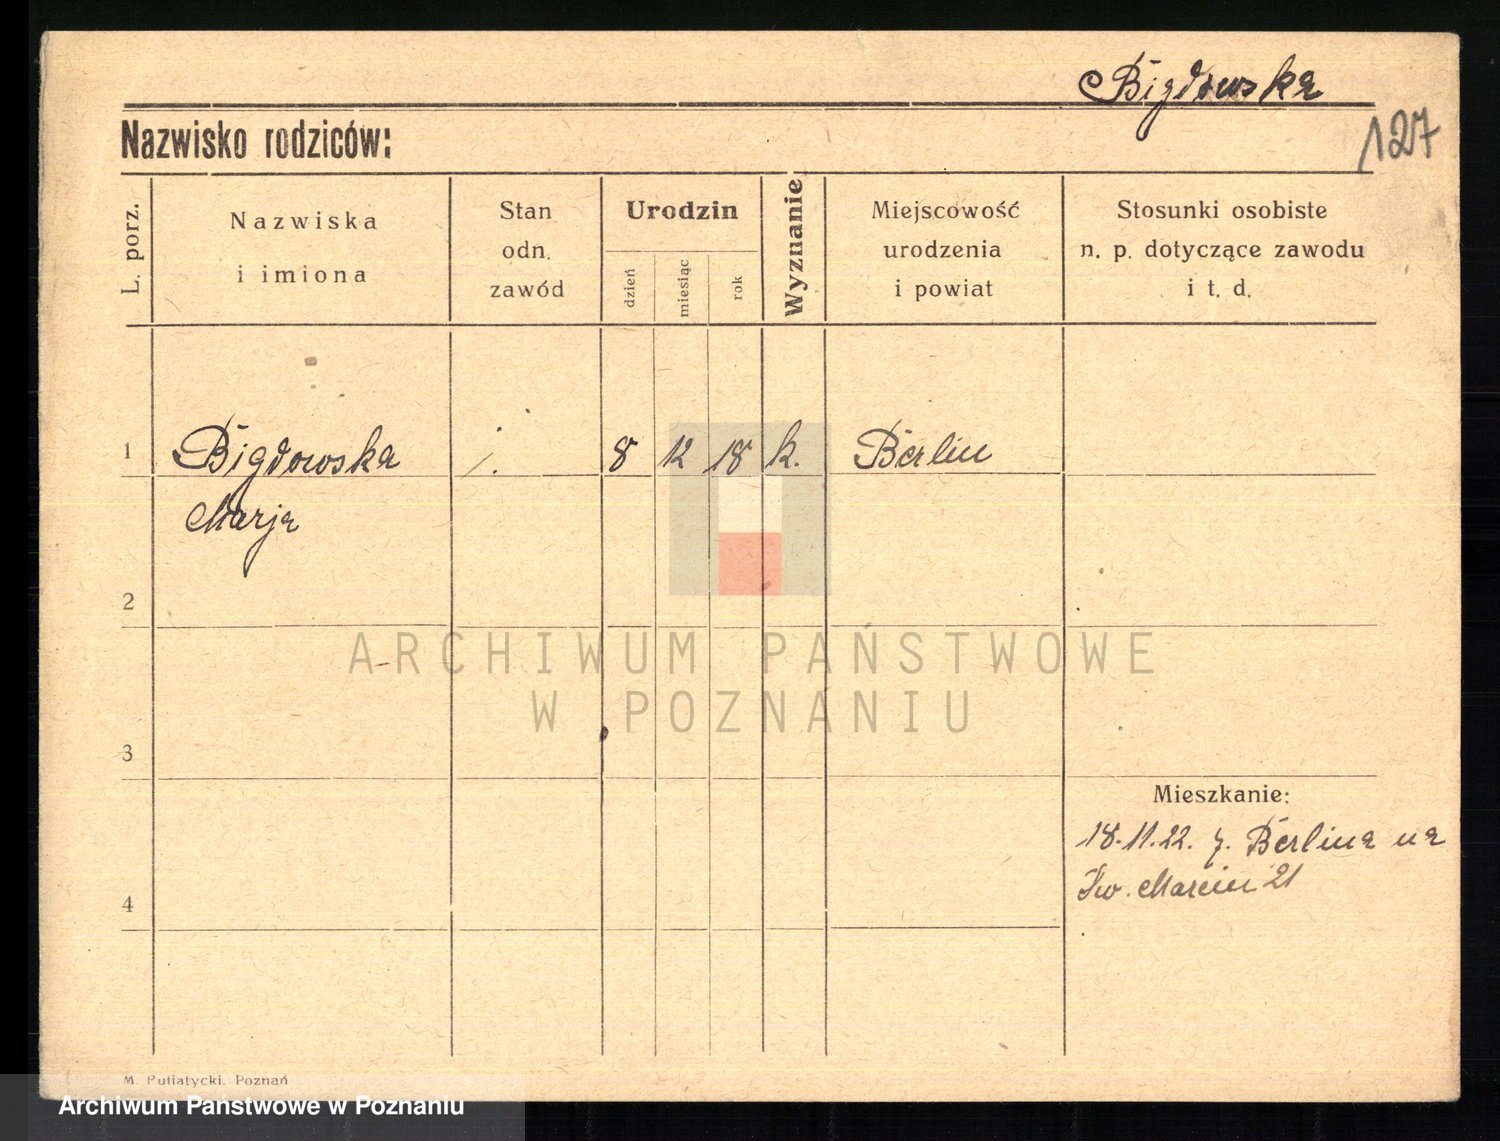 Bigdowska
127
Nazwisko rodziców:
L. porz.
Nazwiska
i imiona
Stan
odn.
zawód
Urodzin
dzień
miesiąc
rok
Wyznanie
Miejscowość
urodzenia
i powiat
Stosunki osobiste
n. p. dotyczące zawodu
i t. d.
1
Bigdowska
Marja
8
12
18
k.
Berlin
2
ARCHIWUM PAŃSTWOWE
W POZNANIU
3
Mieszkanie:
18.11.22. z. Berlina na
Św. Marcin 21
4
M. Putiatycki, Poznań
Archiwum Państwowe w Poznaniu